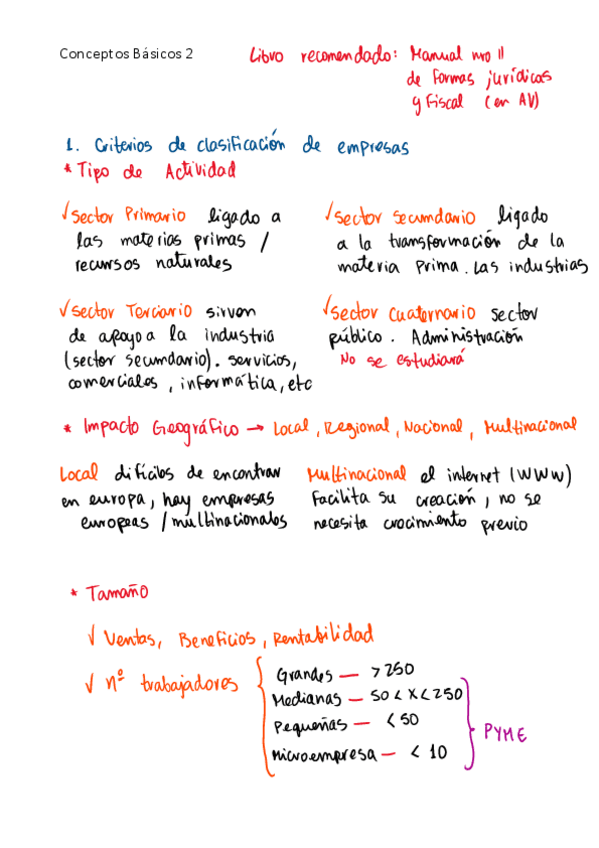 Conceptos Básicos 2
Libro recomendado: Manual nro 11
de Formas jurídicas
y Fiscal (en AV)
1. Criterios de clasificación de empresas
* Tipo de Actividad
√ Sector Primario ligado a
las materias primas /
recursos naturales
√ Sector Secundario ligado
a la transformación de la
materia prima. Las industrias
√ Sector Terciario sirven
de apoyo a la industria
(sector secundario). servicios,
comerciales, informática, etc
√ Sector Cuaternario sector
público. Administración
No se estudiará
* Impacto Geográfico → Local, Regional, Nacional, Multinacional
Local difíciles de encontrar
en europa, hay empresas
europeas / multinacionales
Multinacional el internet (WWW)
Facilita su creación, no se
necesita crecimiento previo
* Tamaño
√ Ventas, Beneficios, Rentabilidad
√ nº trabajadores
Grandes — > 250
Medianas — 50 < X < 250
Pequeñas — < 50
Microempresa — < 10
PYME